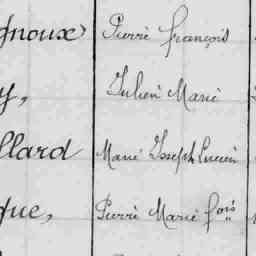 gnoux Pierre françois
y, Julien Marie
llard Marie Joseph Lucien
que, Pierre Marie fois